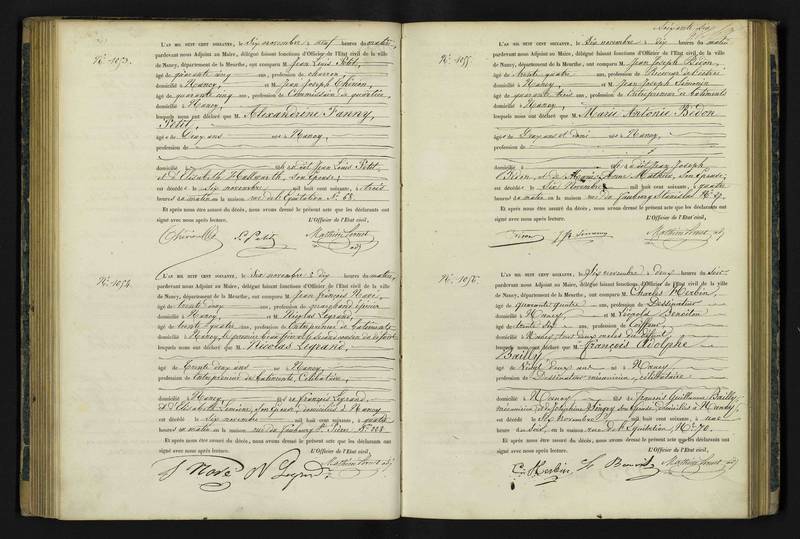 N° 1053.
L'AN MIL HUIT CENT SOIXANTE, le Six novembre à neuf heures du matin,
pardevant nous Adjoint au Maire, délégué faisant fonctions d'Officier de l'État civil de la ville
de Nancy, département de la Meurthe, ont comparu M. Jean Louis Petit,
âgé de quarante cinq ans, profession de charron,
domicilié à Nancy, et M. Jean Joseph
âgé de quarante cinq ans, profession de Commissaire de quartier,
domicilié à Nancy,
lesquels nous ont déclaré que M. Alexandrine Fanny
Petit,
âgée de Deux ans née à Nancy,
profession de
domicilié à fille de dit Jean Louis Petit
et d'Elisabeth Hallworth, son Epouse;
est décédée le Six novembre, mil huit cent soixante, à trois
heures du matin en la maison rue de l'Equitation N° 68.
Et après nous être assuré du décès, nous avons dressé le présent acte que les déclarants ont
signé avec nous après lecture. L'Officier de l'État civil,
L. Petit
N° 1054.
L'AN MIL HUIT CENT SOIXANTE, le Six novembre à dix heures du matin,
pardevant nous Adjoint au Maire, délégué faisant fonctions d'Officier de l'État civil de la ville
de Nancy, département de la Meurthe, ont comparu M. Jean françois Noré,
âgé de trente cinq ans, profession de marchand épicier
domicilié à Nancy, et M. Nicolas Legrand,
âgé de trente quatre ans, profession de Entrepreneur de batiments
domicilié à Nancy, le premier
lesquels nous ont déclaré que M. Nicolas Legrand,
âgé de Trente deux ans né à Nancy,
profession de Entrepreneur de batiments, Célibataire,
domicilié à Nancy, fils de françois Legrand,
et d'Elisabeth son Epouse, domiciliés à Nancy
est décédé le Six novembre mil huit cent soixante, à quatre
heures du matin en la maison rue du faubourg St Pierre N° 228
Et après nous être assuré du décès, nous avons dressé le présent acte que les déclarants ont
signé avec nous après lecture. L'Officier de l'État civil,
J Noré N Legrand
N° 1055.
L'AN MIL HUIT CENT SOIXANTE, le Six novembre à dix heures du matin
pardevant nous Adjoint au Maire, délégué faisant fonctions d'Officier de l'État civil de la ville
de Nancy, département de la Meurthe, ont comparu M. Jean Joseph Bidon,
âgé de trente quatre ans, profession de Receveur de l'octroi
domicilié à Nancy, et M. Jean Joseph Simonin
âgé de quarante trois ans, profession de Entrepreneur de batiments
domicilié à Nancy,
lesquels nous ont déclaré que M. Marie Antonie Bidon
âgée de Deux ans et demi née à Nancy,
profession de
domicilié à fille de dit Jean Joseph
Bidon, et de Anne Mathis, son Epouse,
est décédée le Six Novembre mil huit cent soixante, à quatre
heures du matin en la maison rue du faubourg Stanislas N° 27.
Et après nous être assuré du décès, nous avons dressé le présent acte que les déclarants ont
signé avec nous après lecture. L'Officier de l'État civil,
Bidon
N° 1056.
L'AN MIL HUIT CENT SOIXANTE, le Six novembre à deux heures du soir
pardevant nous Adjoint au Maire, délégué faisant fonctions d'Officier de l'État civil de la ville
de Nancy, département de la Meurthe, ont comparu M. Charles Herbin,
âgé de quarante quatre ans, profession de Dessinateur
domicilié à Nancy, et M. Léopold Benoiton
âgé de trente six ans, profession de Coiffeur
domicilié à Nancy, tous deux amis du défunt
lesquels nous ont déclaré que M. François Adolphe
Bailly
âgé de Vingt deux ans né à Nancy
profession de Dessinateur mécanicien, célibataire
domicilié à Nancy, fils de françois Guillaume Bailly,
mécanicien et de Joséphine son Epouse domiciliés à Nancy,
est décédé le Six Novembre mil huit cent soixante, à une
heure du soir, en la maison rue de l'Equitation N° 70.
Et après nous être assuré du décès, nous avons dressé le présent acte que les déclarants ont
signé avec nous après lecture. L'Officier de l'État civil,
C. Herbin